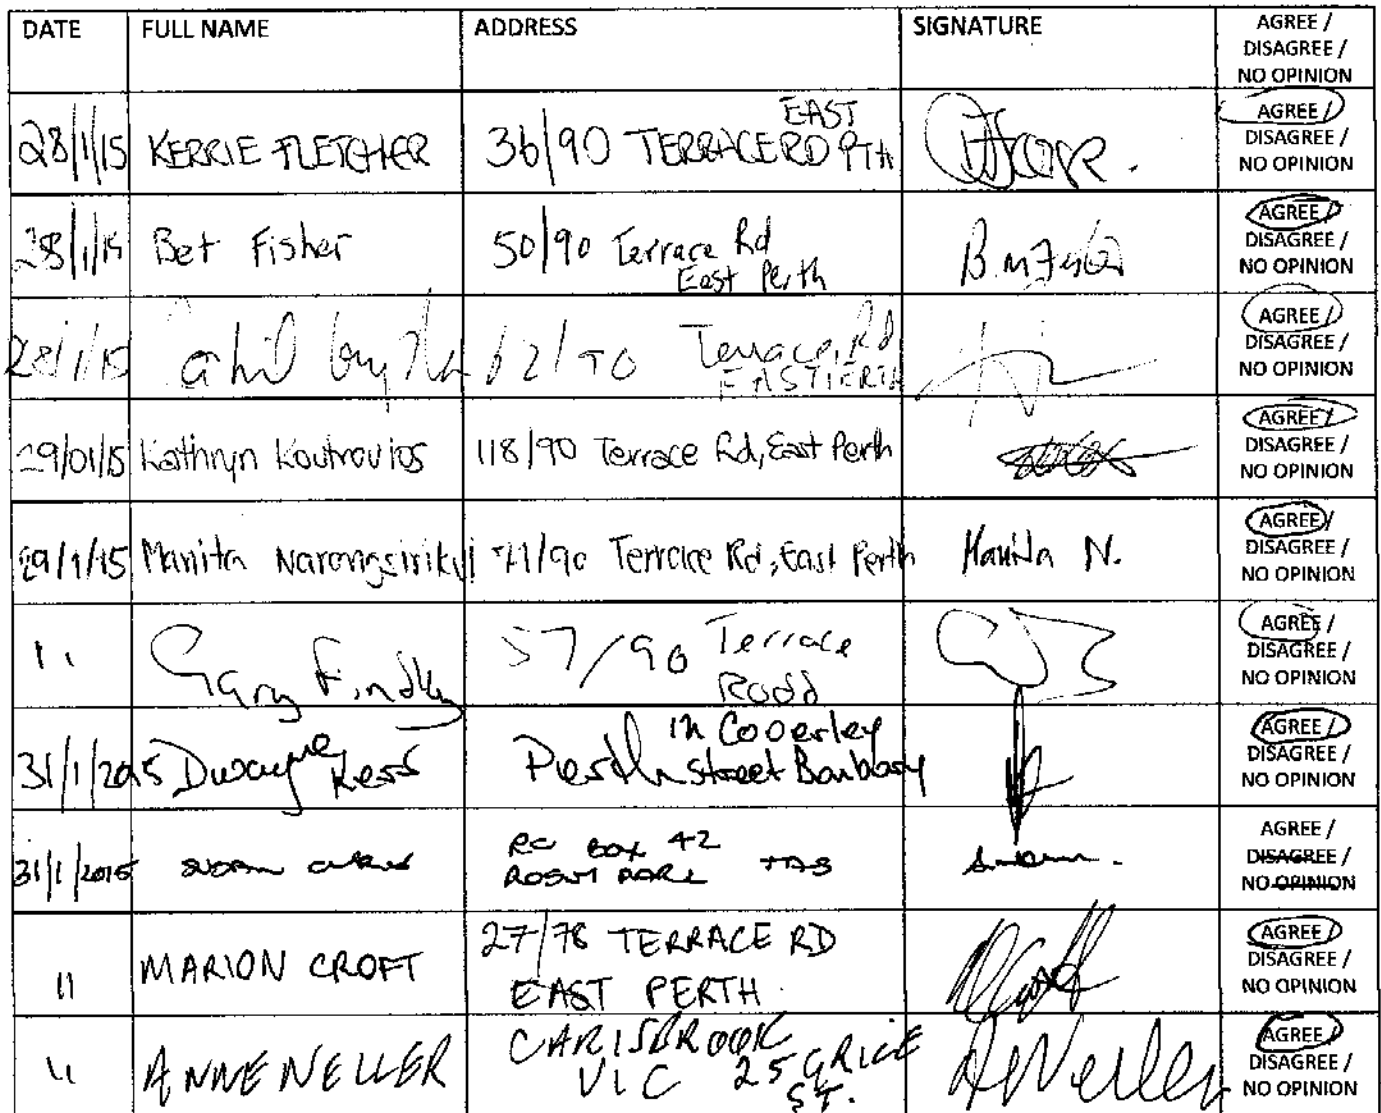 DATE FULL NAME ADDRESS SIGNATURE AGREE /
DISAGREE /
NO OPINION
28/1/15 KERRIE FLETCHER 36/90 TERRACE RD EAST PTH AGREE /
DISAGREE /
NO OPINION
28/1/15 Bet Fisher 50/90 Terrace Rd AGREE /
East Perth DISAGREE /
NO OPINION
28/1/15 62/90 Terrace Rd AGREE /
EAST PERTH DISAGREE /
NO OPINION
29/01/15 Kathryn Koutrovlos 118/90 Terrace Rd, East Perth AGREE /
DISAGREE /
NO OPINION
29/1/15 Manita Narongsirikul 71/90 Terrace Rd, East Perth Manita N. AGREE /
DISAGREE /
NO OPINION
11 Gary Findlay 57/90 Terrace AGREE /
Road DISAGREE /
NO OPINION
31/1/2015 Dwayne 12 Cooerley AGREE /
Perth Street DISAGREE /
NO OPINION
31/1/2015 BOX 42 AGREE /
TAS DISAGREE /
NO OPINION
11 MARION CROFT 27/78 TERRACE RD AGREE /
EAST PERTH DISAGREE /
NO OPINION
11 ANNE NELLER CARISBROOK AGREE /
VIC 25 GRICE DISAGREE /
ST. NO OPINION